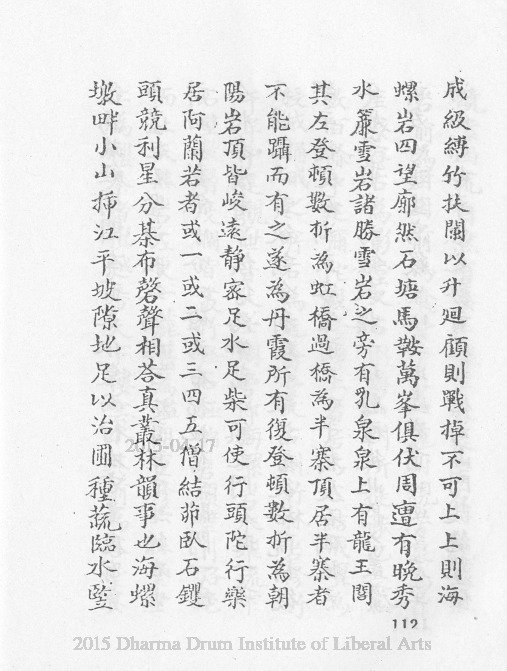 成級縛竹扶闌以升廻顧則戰掉不可上上則海
螺岩四望廓然石塘馬鞍萬峯俱伏周遭有晚秀
水簾雪岩諸勝雪岩之旁有乳泉泉上有龍王閣
其左登頓數折為虹橋過橋為半寨頂居半寨者
不能躡而有之遂為丹霞所有復登頓數折為朝
陽岩頂皆峻遠靜密足水足柴可使行頭陀行藥
居阿蘭若者或一或二或三四五僧結茆臥石钁
頭競利星分棊布磬聲相荅真叢林韻事也海螺
墩畔小山揷江平坡隙地足以治圃種蔬臨水
112
2015-04-17
2015 Dharma Drum Institute of Liberal Arts